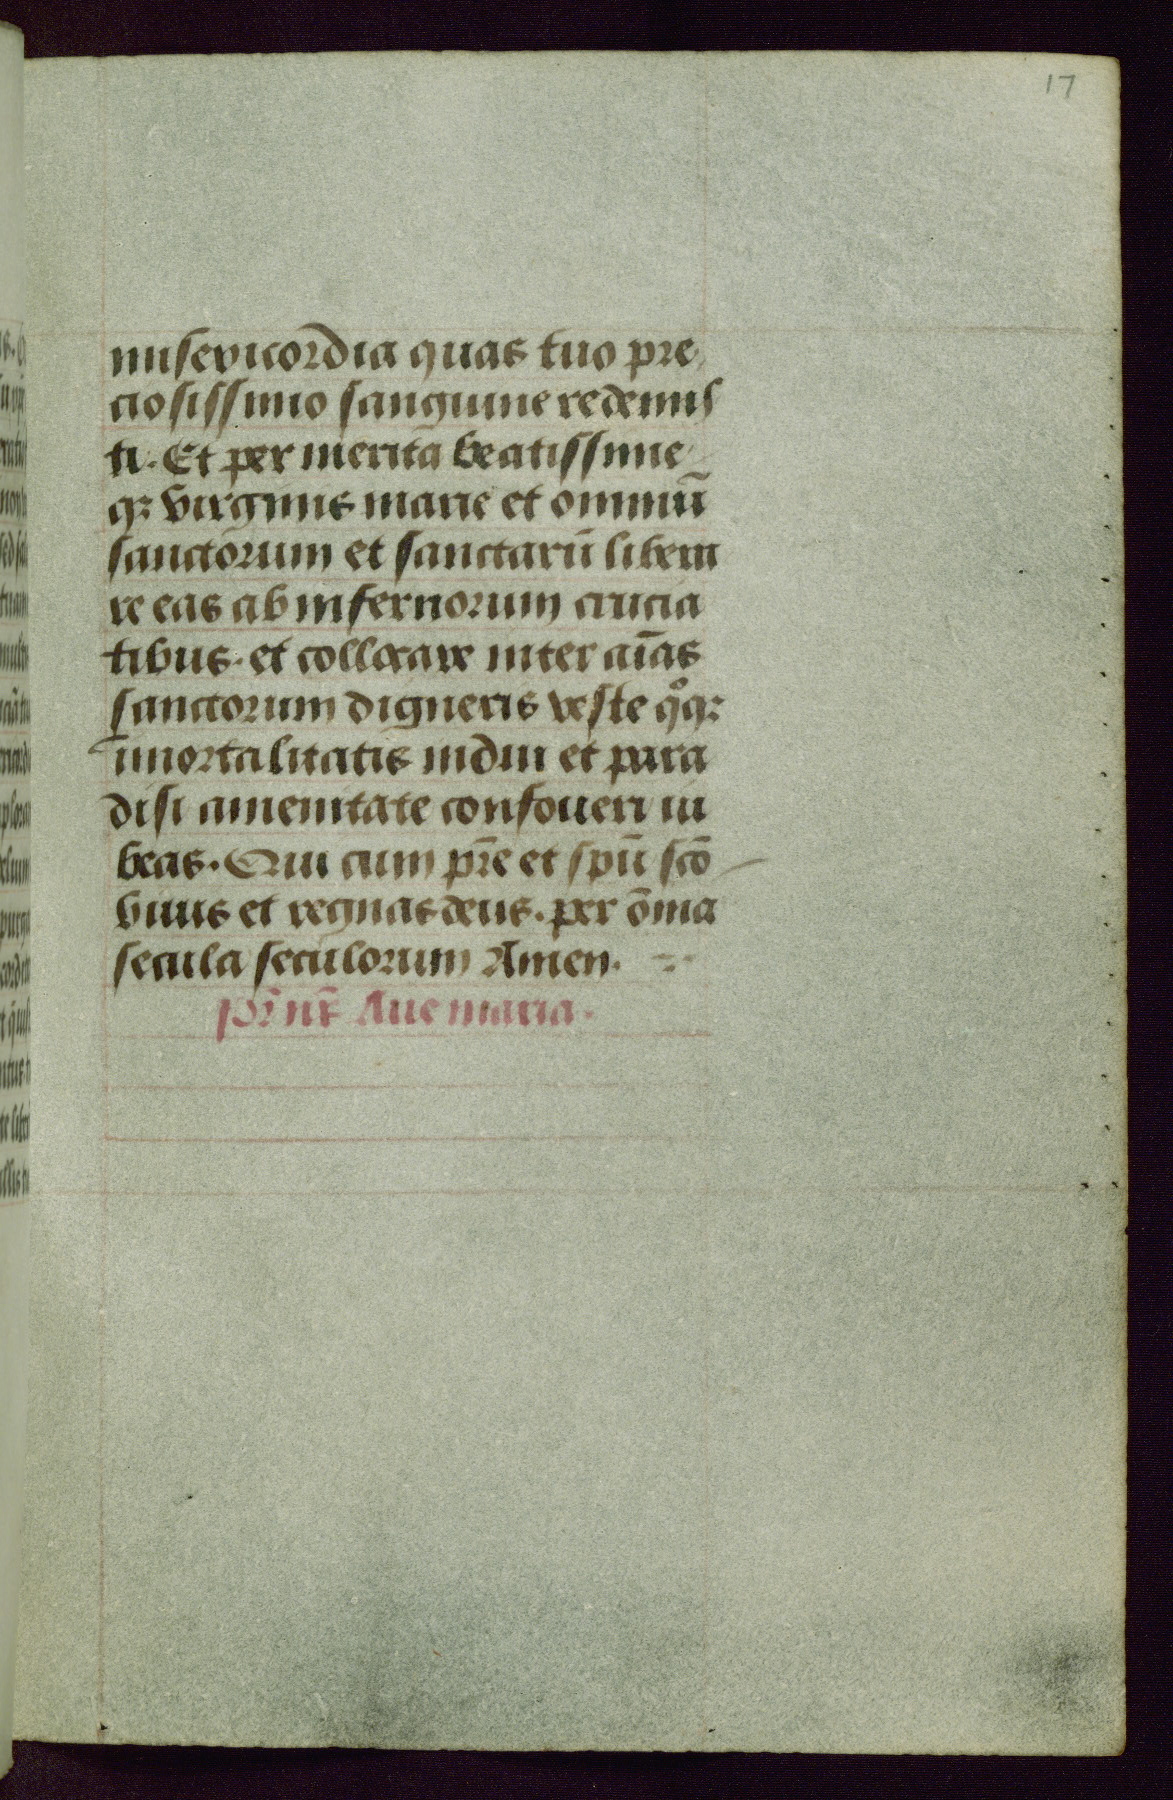 17
misericordia quas tuo pre
ciosissimo sanguine redemis
ti. Et per merita beatissime
qȝ virginis marie et omniū
sanctorum et sanctarū libera
re eas ab infernorum crucia
tibus. et collocare inter aīas
sanctorum digneris veste qͦqȝ
īmortalitatis indui et para
disi amenitate confoueri iu
beas. Qui cum pr̄e et spū scō
viuis et regnas deus. per om̄ia
secula seculorum Amen.
Pr̄ nr̄ Aue maria.